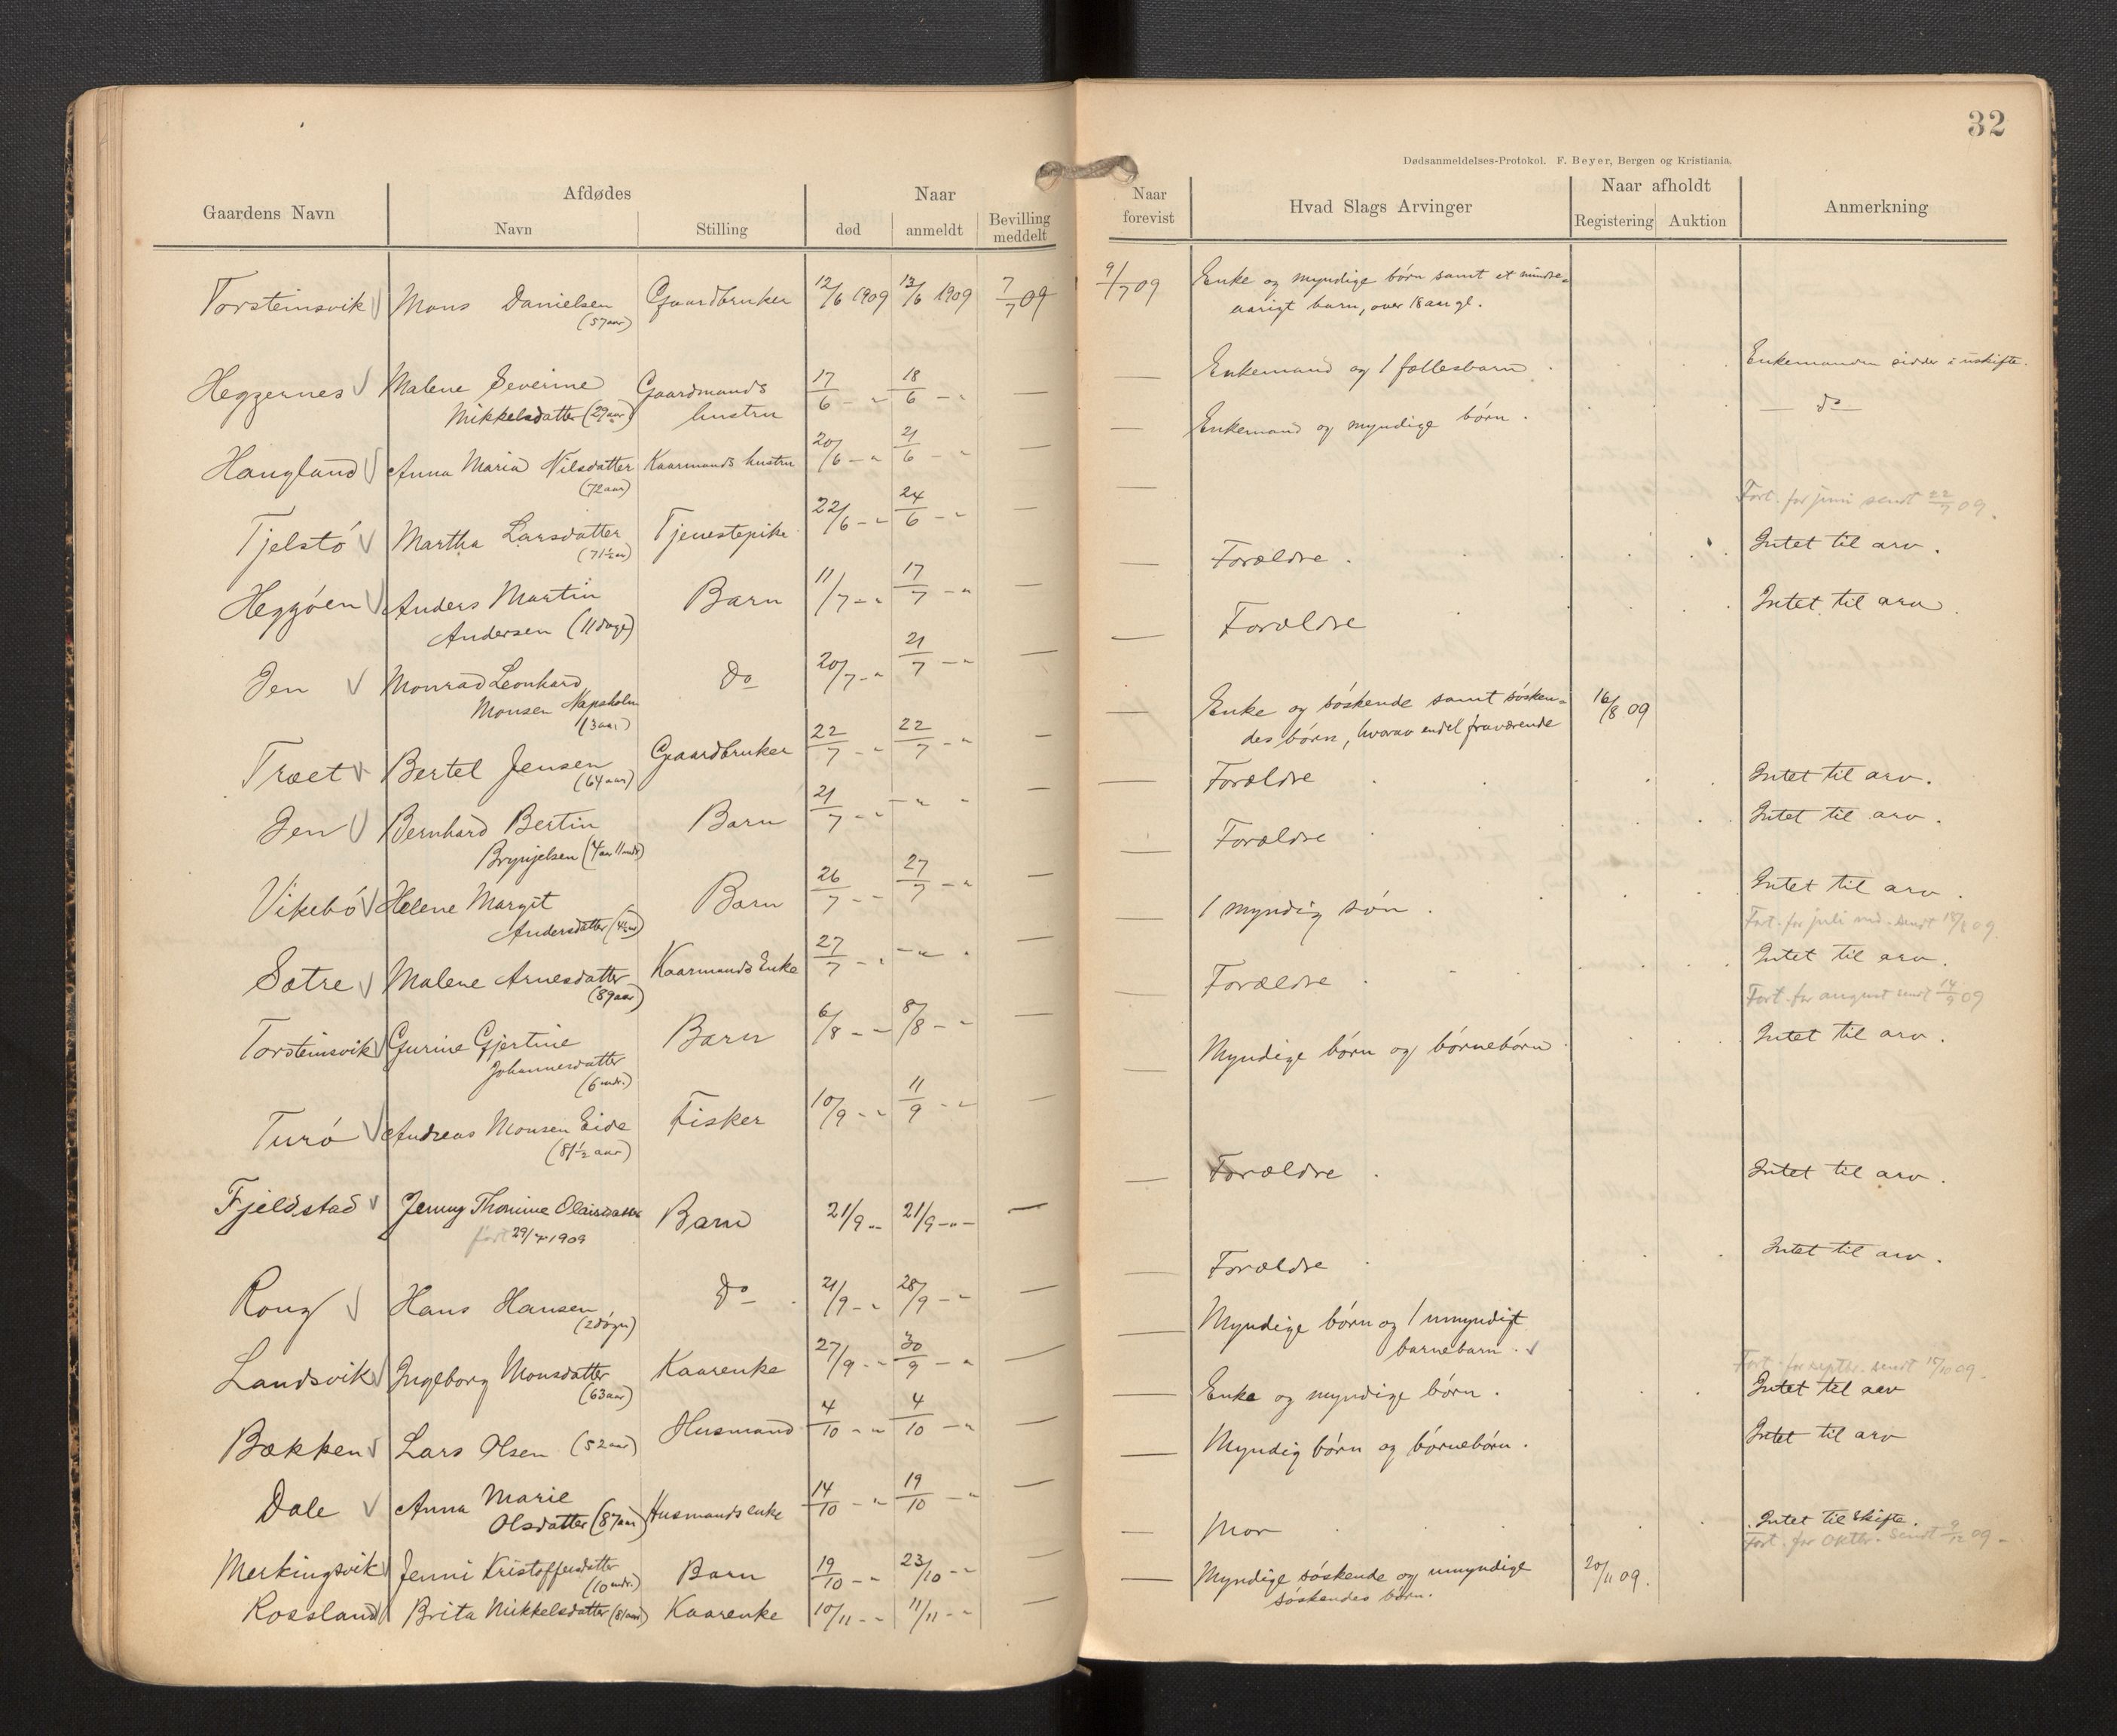 32
Dødsanmeldelses-Protokol. F. Beyer, Bergen og Kristiania.
Gaardens Navn
Afdødes
Navn
Stilling
Naar
død
anmeldt
Bevilling
meddelt
Naar
forevist
Hvad Slags Arvinger
Naar afholdt
Registering
Auktion
Anmerkning
Torsteinsvik Mons Danielsen Gaardbruker 12/6 1909 13/6 1909 7/7 09
(57 aar)
Heggernes Malene Severine Gaardmands 17/6 - " 18/6 - " —
Mikkelsdatter (29 aar) hustru
Haugland Anna Maria Nilsdatter Kaarmands hustru 20/6 - " 21/6 - " —
(72 aar)
Tjelstó Martha Larsdatter Tjenestepike 22/6 - " 24/6 - " —
(71½ aar)
Heggóen Anders Martin Barn 11/7 - " 17/7 - " —
Andersen (11 dage)
Jen Monrad Leonhard do 20/7 - " 21/7 - " —
Monsen Napsholm
(3 aar)
Træet Bertel Jensen Gaardbruker 22/7 - " 22/7 - " —
(64 aar)
Jen Bernhard Bertin Barn 21/7 - " - " - —
Brynjelsen (4 aar 11 mdr)
Vikebó Helene Margit Barn 26/7 - " 27/7 - " —
Andersdatter (4½ aar)
Sætre Malene Arnesdatter Kaarmands Enke 27/7 - " - " - —
(89 aar)
Torsteinsvik Gurine Gjertine Barn 6/8 - " 8/8 - " —
Johannesdatter
(6 mdr.)
Turó Andreas Monsen Eide Fisker 10/9 - " 11/9 - " —
(81½ aar)
Fjeldstad Jenny Thomine Barn 21/9 - " 21/9 - " —
født 29/4 1909
Rong Hans Hansen do 21/9 - " 28/9 - " —
(2 dógn)
Landsvik Ingeborg Monsdatter Kaarenke 27/9 - " 30/9 - " —
(63 aar)
Bækken Lars Olsen (52 aar) Husmand 4/10 - " 4/10 - " —
Dale Anna Marie Husmands enke 14/10 - " 19/10 - " —
Olsdatter (87 aar)
Merkingsvik Jenni Kristoffersdatter Barn 19/10 - " 23/10 - " —
(10 mdr.)
Rossland Brita Mikkelsdatter (81 aar) Kaarenke 10/11 - " 11/11 - " —
9/7 09 Enke og myndige børn samt et mindre-
aarigt barn, over 18 aar gl.
— Enkemand og 1 fællesbarn . Enkemanden sidder i uskifte.
— Enkemand og myndige børn . — do —
—
Fort. for juni sendt 22/7 09.
— Forældre . Intet til arv .
— Forældre Intet til arv .
— Enke og sóskende samt sósken- 16/8 09
des børn, hvorav endel fraværende
— Forældre . Intet til arv .
— Forældre Intet til arv .
— 1 myndig søn . Intet til arv .
Fort. for juli md. sendt 18/8 09.
— Forældre . Intet til arv .
Fort. for august sendt 14/9 09
— Myndige børn og børnebørn . Intet til arv .
— Forældre . Intet til arv .
— Forældre . Intet til arv .
— Myndige børn og 1 umyndigt
barnebarn .
Fort. for septbr. sendt 15/10 09.
— Enke og myndige børn . Intet til arv
— Myndig børn og børnebørn . Intet til arv
— Mor . Intet til skifte .
Fort. for oktbr. sendt 9/12 09 -
— Myndige sóskende og umyndige 20/11 09.
sóskendes børn.